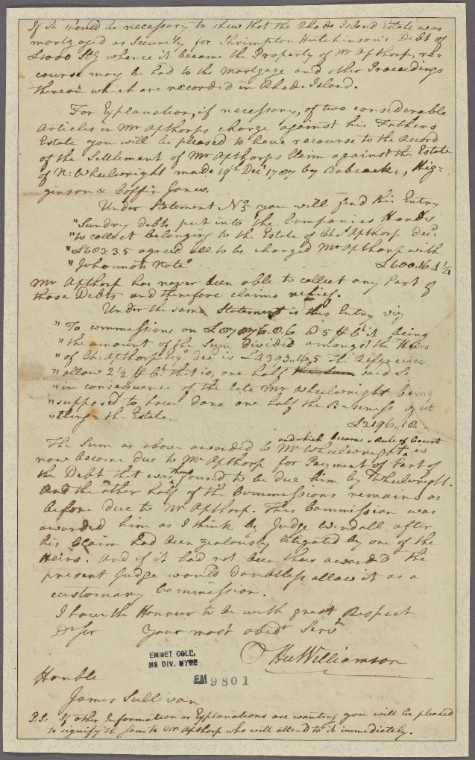 If it should be necessary to shew that the Rhode Island Estate was
mortgag'd as Security for Shrimpton Hutchinson's Debt of
£1000 Stg whence it became the Property of Mr Apthorp, re=
course may be had to the Mortgage and other Proceedings
thereon which are recorded in Rhode Island.
For Explanation, if necessary, of two considerable
Articles in Mr Apthorps charge against his Fathers
Estate you will be pleased to have recourse to the Record
of the Settlement of Mr Apthorps Claim against the Estate
of N: Wheelwright made 19th Decr 1787 by Babcocke, Hig-
ginson & Coffin Jones.
Under Statement No 3 you will find this Entry
"Sundry debts put into the Companies Hands
"to collect belonging to the Estate of Chs Apthorp Decd
"£603.3.5 agreed all to be charged Mr Apthorp with
"Johonnots Note"
£600.16.4 1/4
Mr Apthorp has never been able to collect any Part of
those Debts and therefore claims relief.
Under the same Statement is this Entry viz
"To commissions on @ 5 PCt it being
"the amount of the Sum divided amongst the Heirs
"of Chs Apthorp Esqr Decd is The Referrees
"allow 2 1/2 PCt that is, one half said Sum
"in consequence of the late Mr Wheelwright being
"supposed to have done one half the Business of set
"tling the Estate
£2196.10
The Sum as above awarded to Mr Wheelwright and which became a Rule of Court is
now become due to Mr Apthorp for Payment of Part of
the Debt that was thus found to be due him by Wheelwright.
And the other half of the Commissions remains as
before due to Mr Apthorp. This Commission was
awarded him as I think by Judge Wendall after
his Claim had been zealously litigated by one of the
Heirs. And if it had not been thus awarded the
present Judge would doubtless allow it as a
customary Commission.
I have the Honour to be with great Respect
Dr Sir Your most obedt Servt
Hu Williamson
EMMET COLL.
MS DIV. NYPL
EM 9801
Honble
James Sullivan
P.S. If other Information or Explanations are wanting you will be pleased
to signify the same to Mr Apthorp who will attend to it immediately.